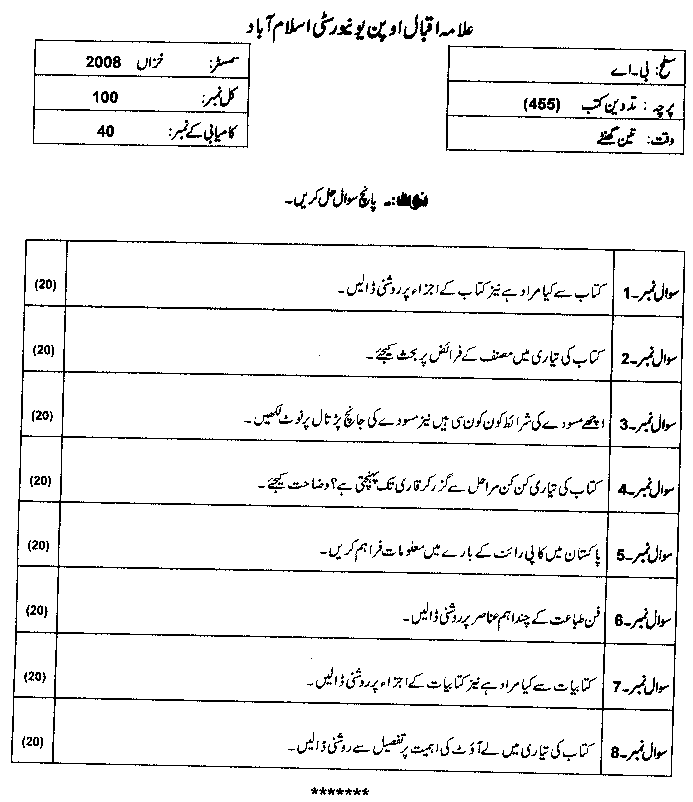 علامہ اقبال اوپن یونیورسٹی اسلام آباد
سطح: بی۔اے
پرچہ: تدوین کتب (455)
وقت: تین گھنٹے
سمسٹر: خزاں 2008
کل نمبر: 100
کامیابی کے نمبر: 40
نوٹ:۔ پانچ سوال حل کریں۔
سوال نمبر۔1 کتاب سے کیا مراد ہے نیز کتاب کے اجزاء پر روشنی ڈالیں۔ (20)
سوال نمبر۔2 کتاب کی تیاری میں مصنف کے فرائض پر بحث کیجئے۔ (20)
سوال نمبر۔3 اچھے مسودے کی شرائط کون کون سی ہیں نیز مسودے کی جانچ پڑتال پر نوٹ لکھیں۔ (20)
سوال نمبر۔4 کتاب کی تیاری کن کن مراحل سے گزر کر قاری تک پہنچتی ہے؟ وضاحت کیجئے۔ (20)
سوال نمبر۔5 پاکستان میں کاپی رائت کے بارے میں معلومات فراہم کریں۔ (20)
سوال نمبر۔6 فن طباعت کے چند اہم عناصر پر روشنی ڈالیں۔ (20)
سوال نمبر۔7 کتابیات سے کیا مراد ہے نیز کتابیات کے اجزاء پر روشنی ڈالیں۔ (20)
سوال نمبر۔8 کتاب کی تیاری میں لے آؤٹ کی اہمیت پر تفصیل سے روشنی ڈالیں۔ (20)
*******